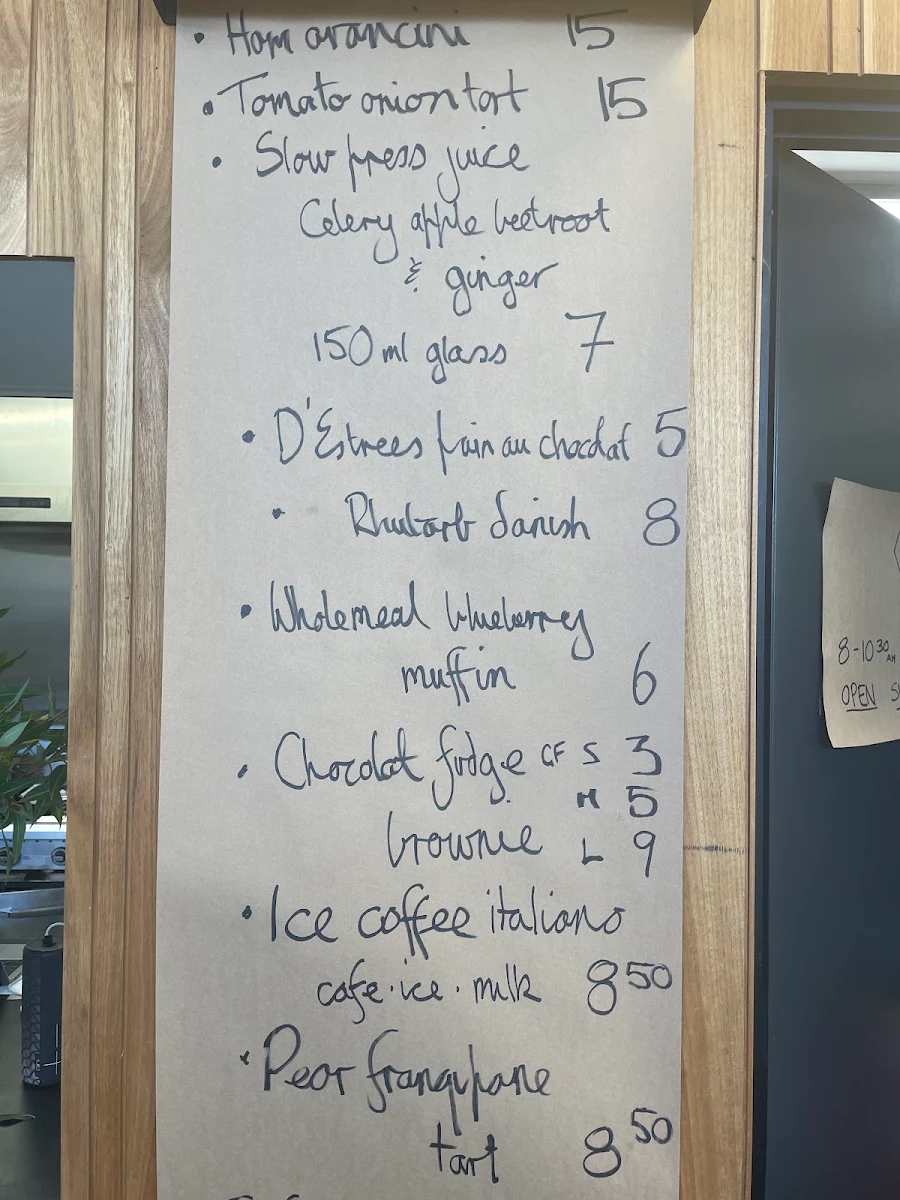 • Ham arancini 15
• Tomato onion tart 15
• Slow press juice
Celery apple beetroot
& ginger
150 ml glass 7
• D'Estrees pain au chocolat 5
• Rhubarb danish 8
• Wholemeal blueberry
muffin 6
• Chocolat fudge GF S 3
M 5
brownie L 9
• Ice coffee italiano
cafe · ice · milk 8 50
• Pear frangipane
tart 8 50
8-10 30 AM
OPEN